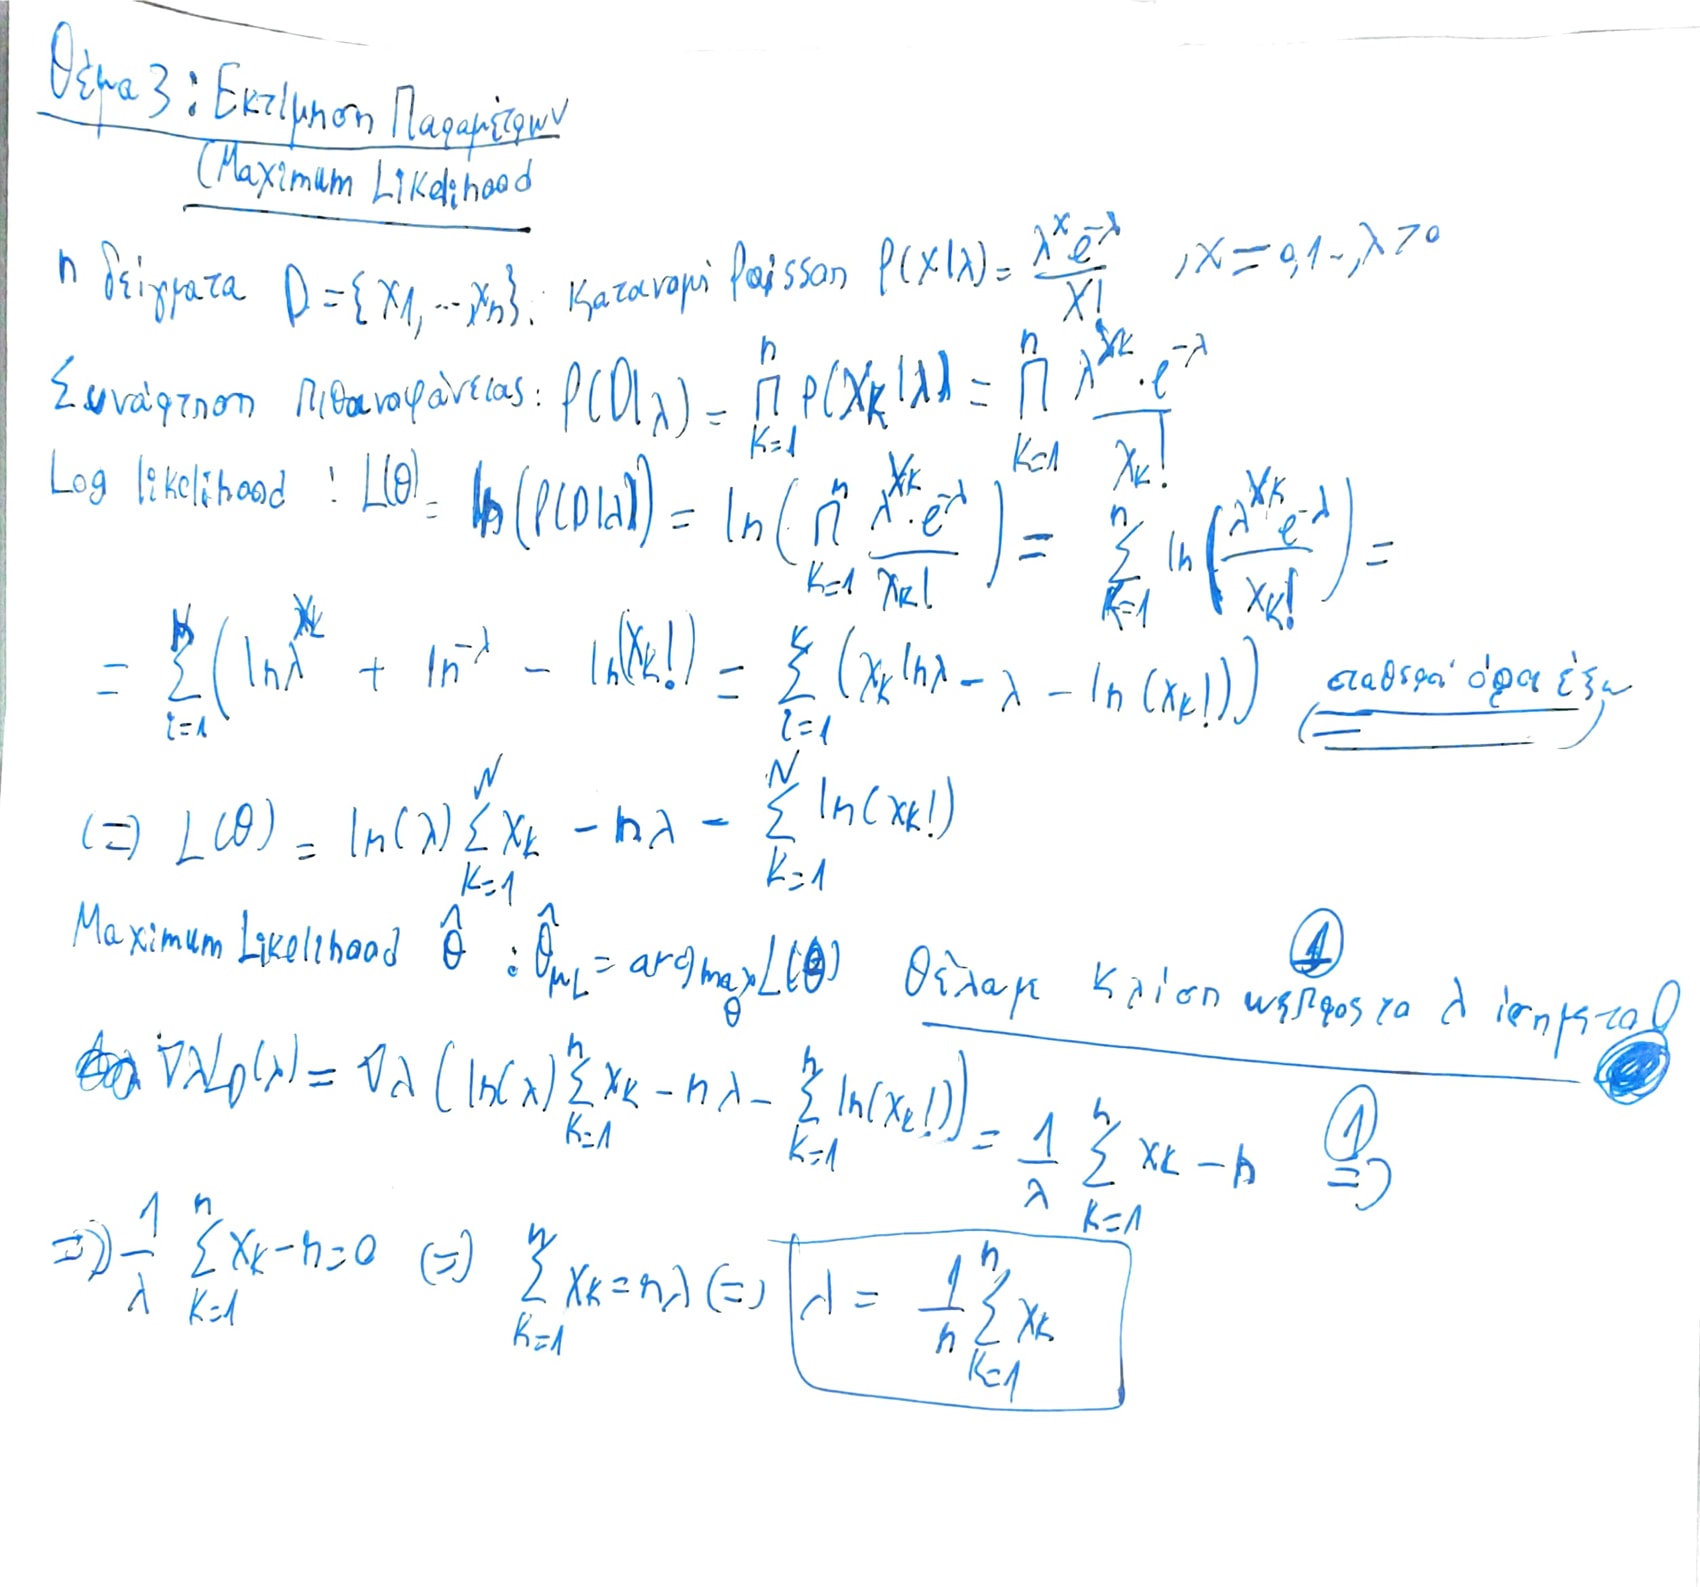 Θέμα 3: Εκτίμηση Παραμέτρων
(Maximum Likelihood
n δείγματα D = {x1, ... xn}: Κατανομή Poisson P(x|λ) = λ^x e^-λ / x! , x = 0,1.., λ > 0
Συνάρτηση πιθανοφάνειας: P(D|λ) = n Π k=1 P(xk|λ) = n Π k=1 λ^xk · e^-λ / xk!
Log likelihood : L(θ) = ln(P(D|λ)) = ln( n Π k=1 λ^xk · e^-λ / xk! ) = n Σ k=1 ln( λ^xk e^-λ / xk! ) =
= Σ i=1 ( lnλ^xk + ln^-λ - ln(xk!) ) = Σ i=1 (xk lnλ - λ - ln(xk!)) σταθερά όρα έξω
(=) L(θ) = ln(λ) N Σ k=1 xk - nλ - N Σ k=1 ln(xk!)
Maximum Likelihood θ̂ : θ̂ML = argmax θ L(θ) Θέλαμε κλίση ως προς το λ ίση με το 0 (1)
∇λ LD(λ) = ∇λ ( ln(λ) n Σ k=1 xk - nλ - n Σ k=1 ln(xk!) ) = 1/λ n Σ k=1 xk - n (1) =)
=)) 1/λ n Σ k=1 xk - n = 0 (=) n Σ k=1 xk = nλ (=) λ = 1/n n Σ k=1 xk